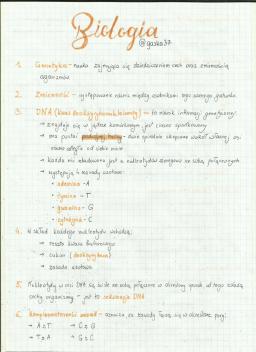 Biologia
@gaska37
1. Genetyka - nauka zajmująca się dziedziczeniem cech oraz zmiennością
organizmów
2. Zmienność - występowanie różnic między osobnikami tego samego gatunku
3. DNA (kwas deoksyrybonukleinowy) - to nośnik informacji genetycznej
→ znajduje się w jądrze komórkowym, jest ciasno upakowany
→ ma postać podwójnej helisy - dwie spiralnie skręcone wokół własnej osi
→ każda nić zbudowana jest z nukleotydów ze sobą połączonych
→ występują 4 zasady azotowe:
• adenina - A
• tymina - T
• guanina - G
• cytozyna - C
4. W skład każdego nukleotydu wchodzą:
→ reszta kwasu fosforowego
→ cukier (deoksyryboza)
→ zasada azotowa
5. Nukleotydy w nici DNA są ściśle ze sobą połączone w określony sposób, od tego zależą
cechy organizmu - jest to sekwencja DNA
6. Komplementarność zasad - oznacza, że zasady łączą się w określone pary:
→ A≡T → C≡G
T≡A G≡C